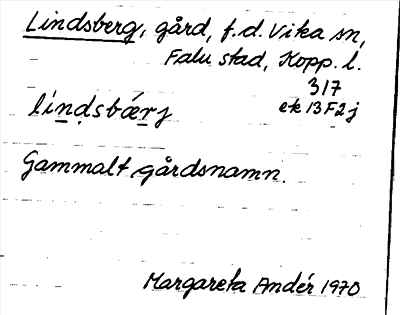 Lindsberg, gård, f.d. Vika sn,
Falu stad, Kopp. l.
317
lindsbærj ek 13F2j
Gammalt gårdsnamn.
Margareta Andér 1970